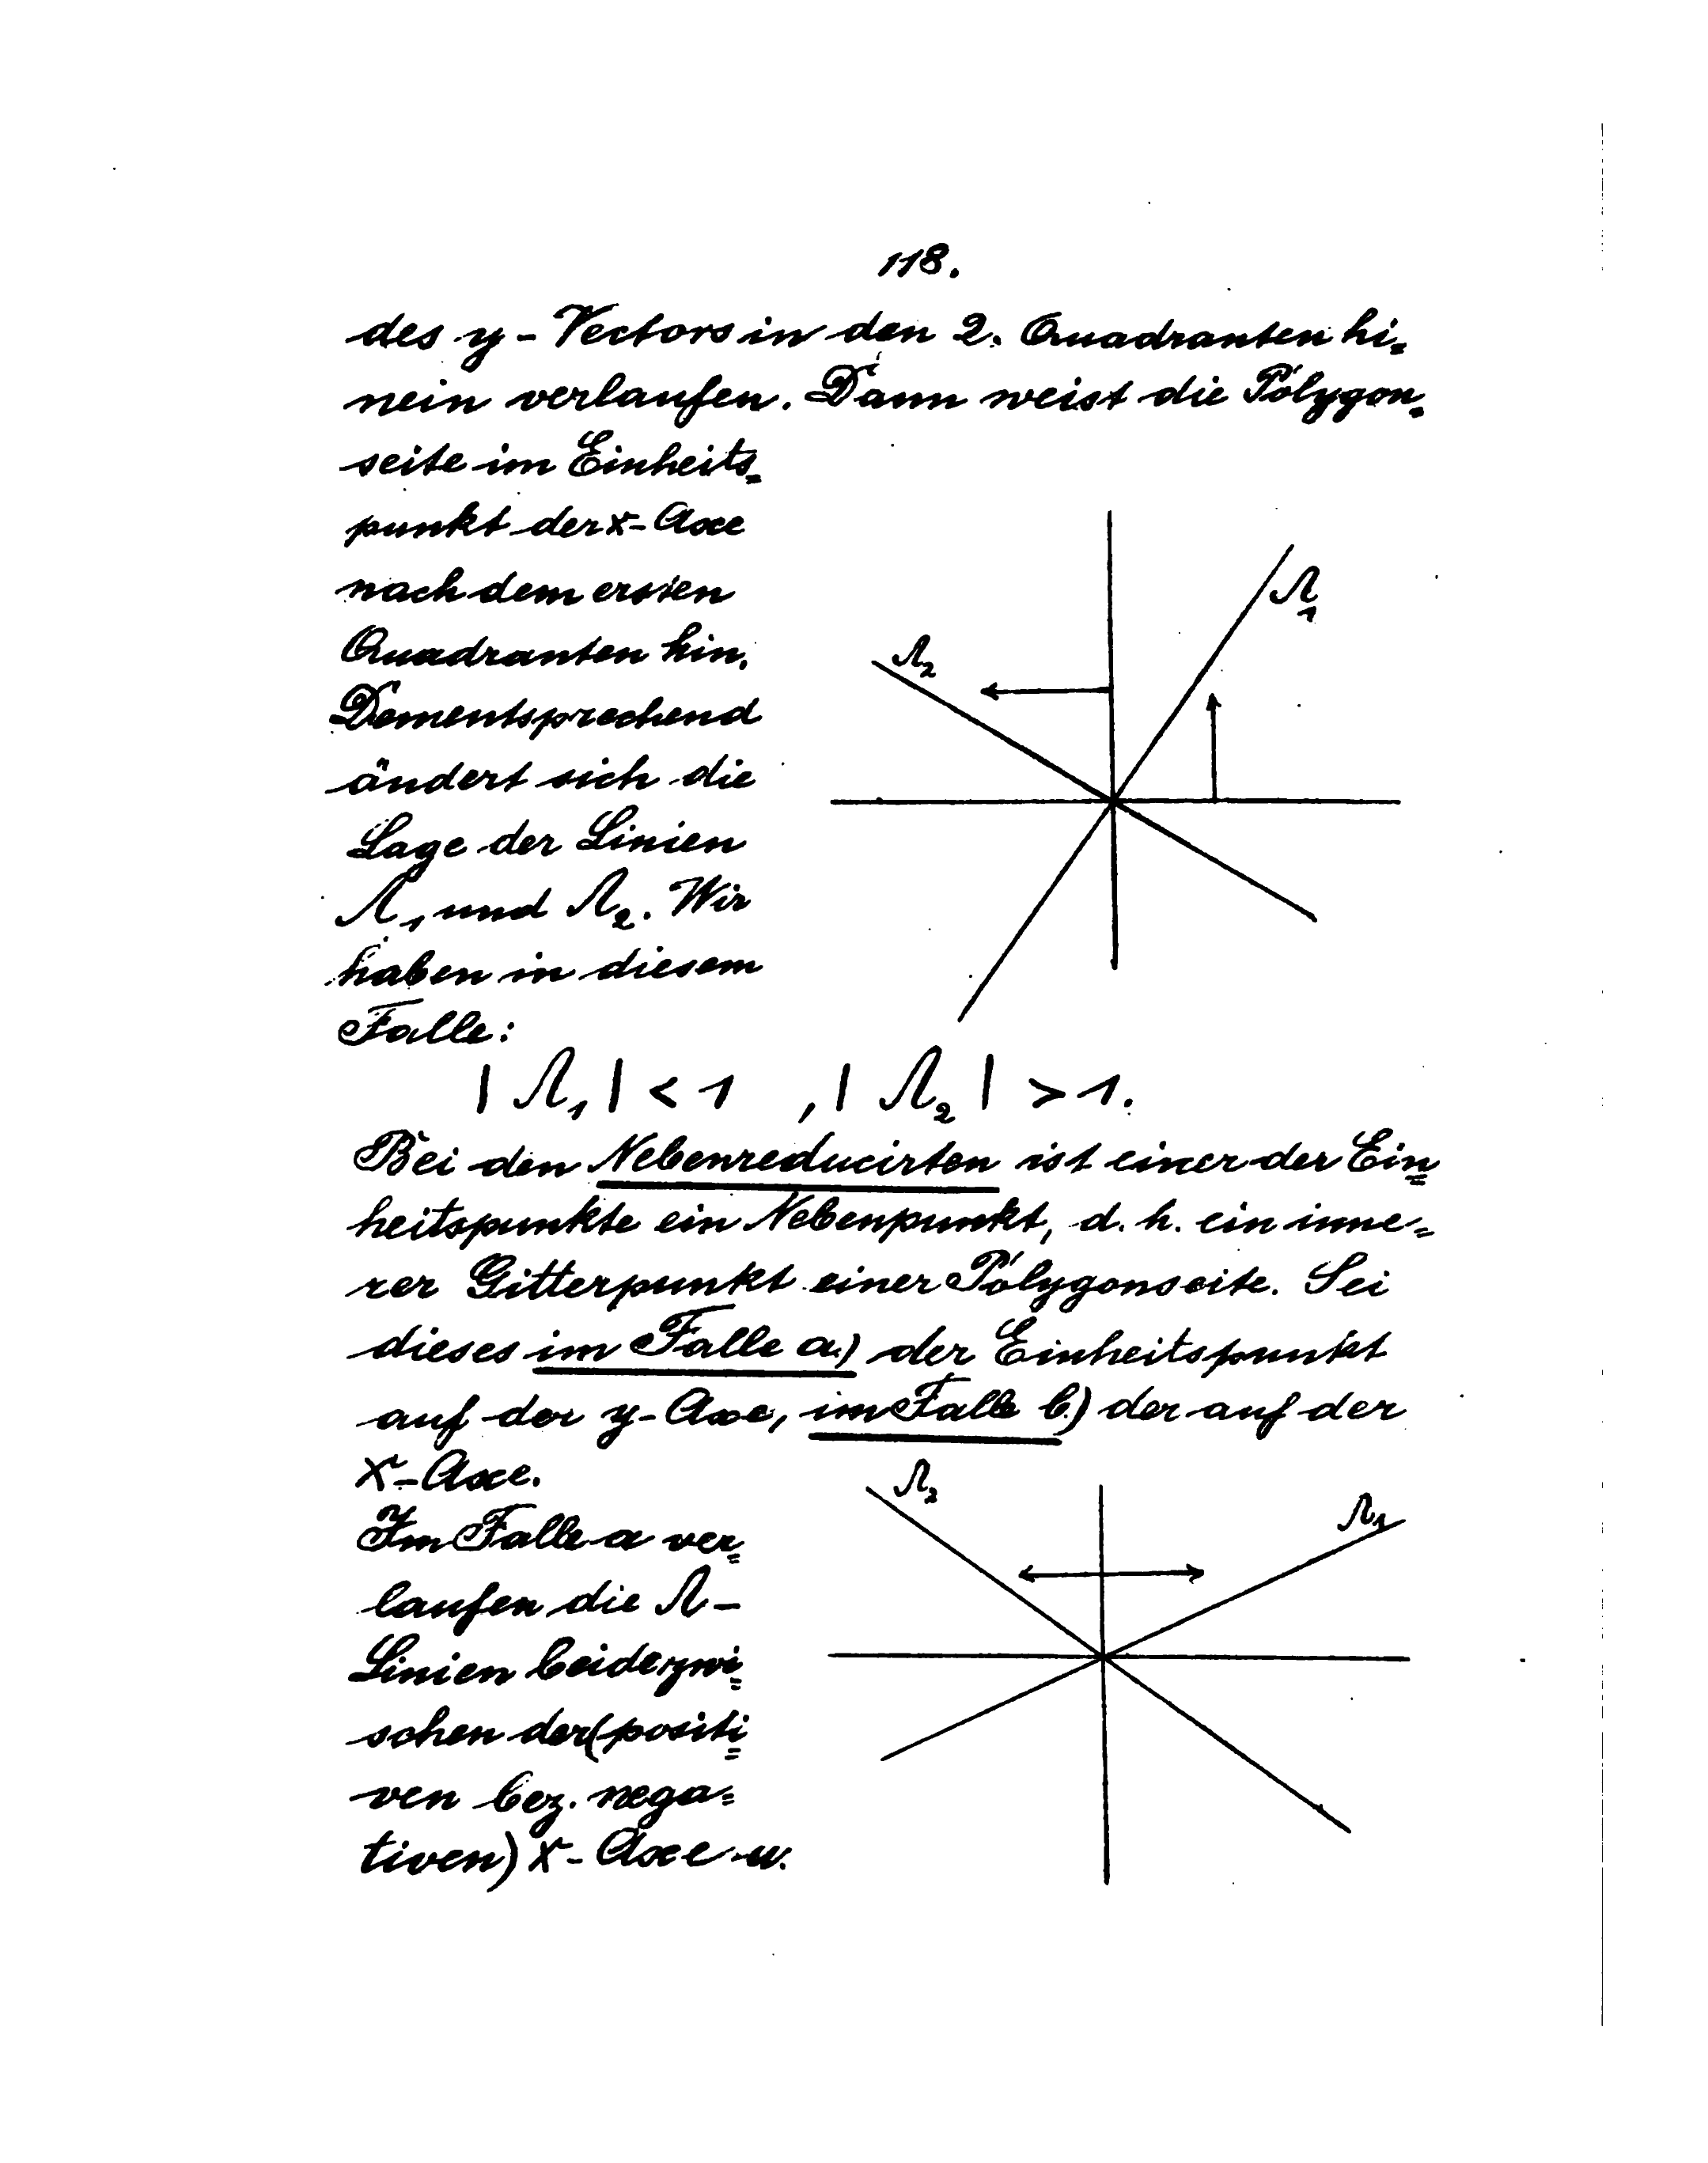 118.
des y - Vectors in den 2. Quadranten hi=
nein verlaufen. Dann weist die Polygon=
seite im Einheits=
punkt der x-Axe
nach dem ersten
Quadranten hin.
Dementsprechend
ändert sich die
Lage der Linien
Λ₁ und Λ₂. Wir
haben in diesem
Falle:
Λ₁
Λ₂
|Λ₁| < 1 , |Λ₂| > 1.
Bei den Nebenreducirten ist einer der Ein=
heitspunkte ein Nebenpunkt, d. h. ein inne=
rer Gitterpunkt einer Polygonseite. Sei
dieses im Falle a.) der Einheitspunkt
auf der y-Axe, im Falle b.) der auf der
x-Axe.
Im Falle a ver=
laufen die Λ-
Linien beide zwi=
schen der (positi=
ven bez. nega=
tiven) x-Axe u.
Λ₂
Λ₁